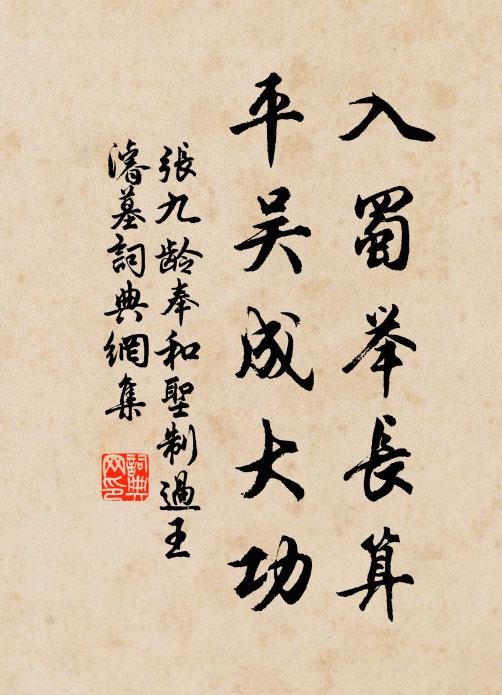 入蜀举長算
平吴成大功
張九龄奉和聖制過王
濬墓詞典網集
詞典
网印